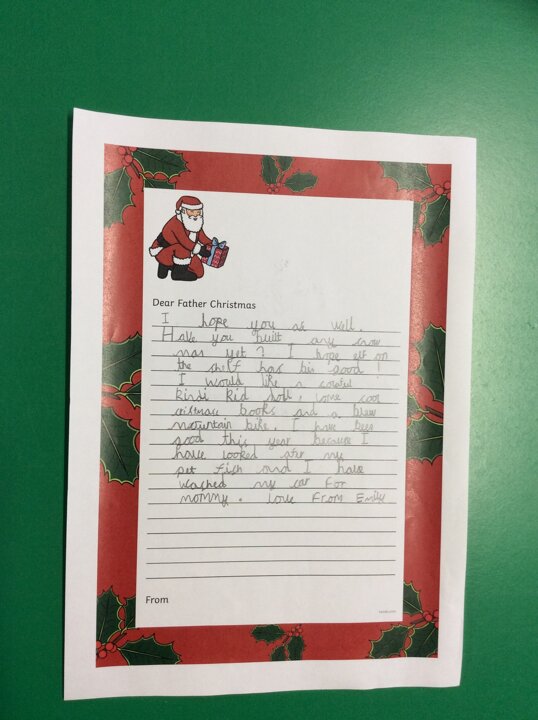 Dear Father Christmas
I hope you as well.
Have you built any snow
man yet? I hope elf on
the shelf has bin good!
I would like a
Kindi Kid doll, some cool
books and a blue
mountain bike. I have been
good this year because I
have looked after my
pet fish and I have
wached my car for
mommy. Love From Emily
From